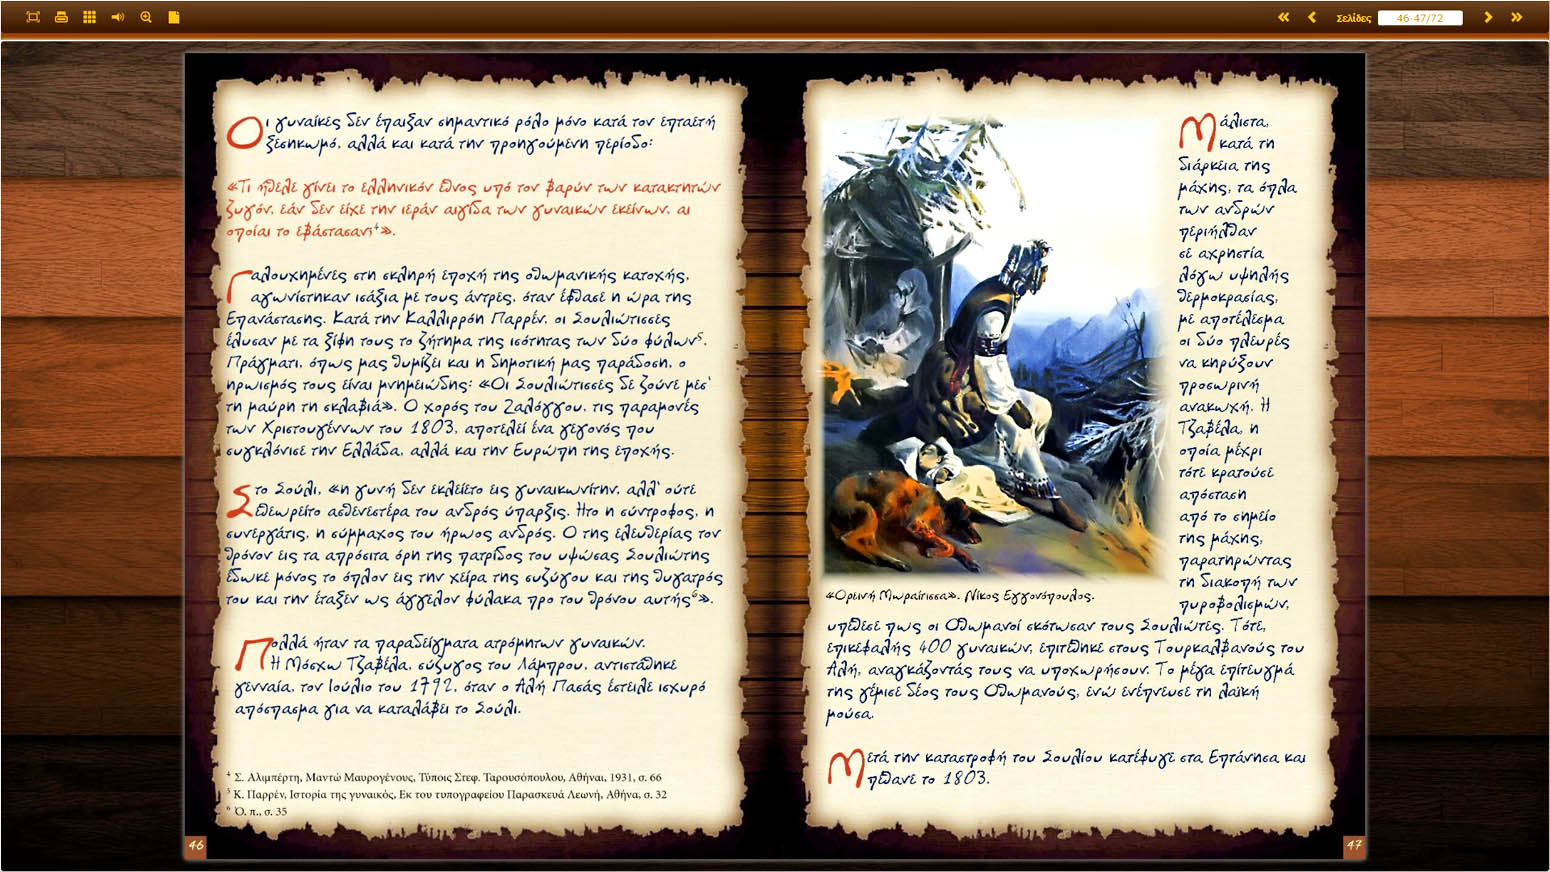 Σελίδες
46-47/72
Οι γυναίκες δεν έπαιξαν σημαντικό ρόλο μόνο κατά τον επταετή
ξεσηκωμό, αλλά και κατά την προηγούμενη περίοδο:
«Τι ήθελε γίνει το ελληνικόν έθνος υπό τον βαρύν των κατακτητών
ζυγόν, εάν δεν είχε την ιεράν αιγίδα των γυναικών εκείνων, αι
οποίαι το εβάστασαν;⁴».
Γαλουχημένες στη σκληρή εποχή της οθωμανικής κατοχής,
αγωνίστηκαν ισάξια με τους άντρες, όταν έφθασε η ώρα της
Επανάστασης. Κατά την Καλλιρρόη Παρρέν, οι Σουλιώτισσες
έλυσαν με τα ξίφη τους το ζήτημα της ισότητας των δύο φύλων⁵.
Πράγματι, όπως μας θυμίζει και η δημοτική μας παράδοση, ο
ηρωισμός τους είναι μνημειώδης: «Οι Σουλιώτισσες δε ζούνε μεσ'
τη μαύρη τη σκλαβιά». Ο χορός του Ζαλόγγου, τις παραμονές
των Χριστουγέννων του 1803, αποτελεί ένα γεγονός που
συγκλόνισε την Ελλάδα, αλλά και την Ευρώπη της εποχής.
Στο Σούλι, «η γυνή δεν εκλείετο εις γυναικωνίτην, αλλ' ούτε
εθεωρείτο ασθενεστέρα του ανδρός ύπαρξις. Ητο η σύντροφος, η
συνεργάτις, η σύμμαχος του ήρωος ανδρός. Ο της ελευθερίας τον
θρόνον εις τα απρόσιτα όρη της πατρίδος του υψώσας Σουλιώτης
έδωκε μόνος το όπλον εις την χείρα της συζύγου και της θυγατρός
του και την έταξεν ως άγγελον φύλακα προ του θρόνου αυτής⁶».
Πολλά ήταν τα παραδείγματα ατρόμητων γυναικών.
Η Μόσχω Τζαβέλα, σύζυγος του Λάμπρου, αντιστάθηκε
γενναία, τον Ιούλιο του 1792, όταν ο Αλή Πασάς έστειλε ισχυρό
απόσπασμα για να καταλάβει το Σούλι.
⁴ Σ. Αλιμπέρτη, Μαντώ Μαυρογένους, Τύποις Στεφ. Ταρουσόπουλου, Αθήναι, 1931, σ. 66
⁵ Κ. Παρρέν, Ιστορία της γυναικός, Εκ του τυπογραφείου Παρασκευά Λεωνή, Αθήνα, σ. 32
⁶ Ό. π., σ. 35
46
Μάλιστα,
κατά τη
διάρκεια της
μάχης, τα όπλα
των ανδρών
περιήλθαν
σε αχρηστία
λόγω υψηλής
θερμοκρασίας,
με αποτέλεσμα
οι δύο πλευρές
να κηρύξουν
προσωρινή
ανακωχή. Η
Τζαβέλα, η
οποία μέχρι
τότε κρατούσε
απόσταση
από το σημείο
της μάχης,
παρατηρώντας
τη διακοπή των
πυροβολισμών,
«Ορεινή Μωραΐτισσα». Νίκος Εγγονόπουλος.
υπέθεσε πως οι Οθωμανοί σκότωσαν τους Σουλιώτες. Τότε,
επικεφαλής 400 γυναικών, επιτέθηκε στους Τουρκαλβανούς του
Αλή, αναγκάζοντάς τους να υποχωρήσουν. Το μέγα επίτευγμά
της γέμισε δέος τους Οθωμανούς, ενώ ενέπνευσε τη λαϊκή
μούσα.
Μετά την καταστροφή του Σουλίου κατέφυγε στα Επτάνησα και
πέθανε το 1803.
47